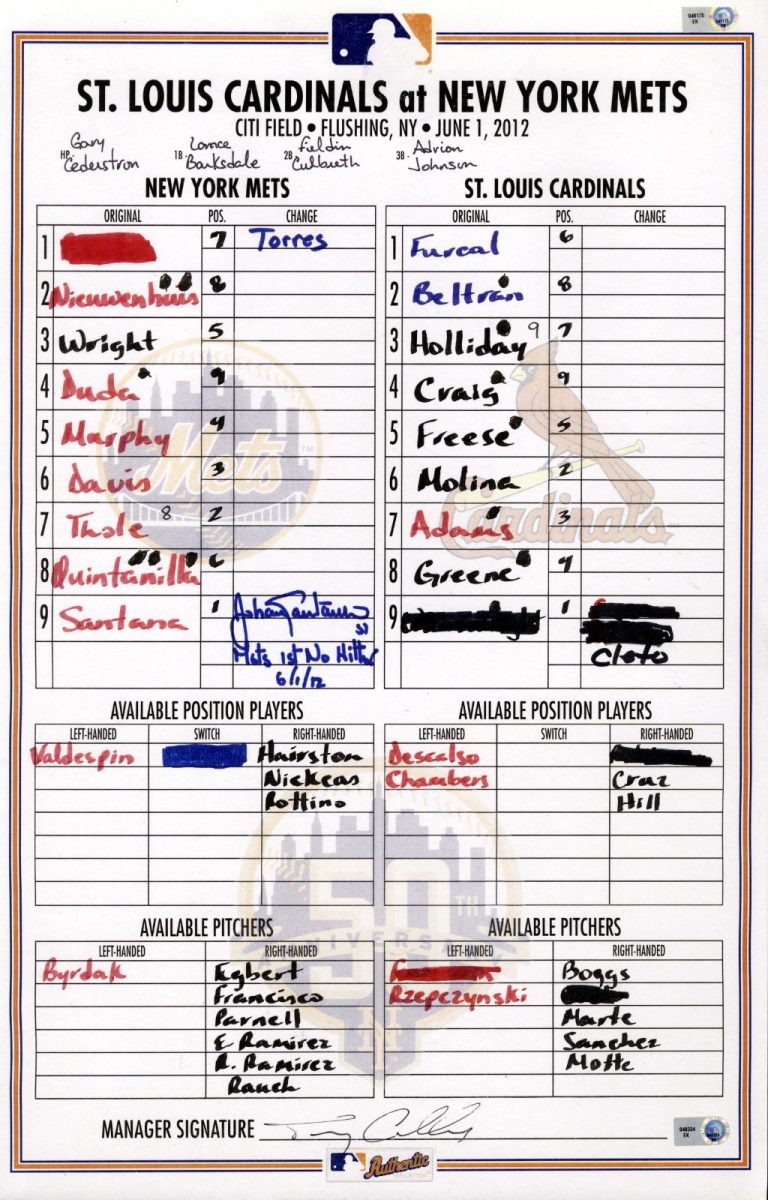 ST. LOUIS CARDINALS at NEW YORK METS
CITI FIELD • FLUSHING, NY • JUNE 1, 2012
HP Gary Cederstrom 1B Lance Barksdale 2B Fieldin Culbreth 3B Adrian Johnson
NEW YORK METS
ORIGINAL POS. CHANGE
1 7 Torres
2 Nieuwenhuis 8
3 Wright 5
4 Duda 9
5 Murphy 4
6 Davis 3
7 Thole 8 2
8 Quintanilla 6
9 Santana 1 Johan Santana
57
Mets 1st No Hitter
6/1/12
ST. LOUIS CARDINALS
ORIGINAL POS. CHANGE
1 Furcal 6
2 Beltran 8
3 Holliday 9 7
4 Craig 9
5 Freese 5
6 Molina 2
7 Adams 3
8 Greene 4
9 1
Cleto
Mets
TM
Cardinals
AVAILABLE POSITION PLAYERS
LEFT-HANDED SWITCH RIGHT-HANDED
Valdespin Hairston
Nickeas
Rottino
AVAILABLE POSITION PLAYERS
LEFT-HANDED SWITCH RIGHT-HANDED
Descalso
Chambers Cruz
Hill
50TH
ANNIVERSARY
NY
AVAILABLE PITCHERS
LEFT-HANDED RIGHT-HANDED
Byrdak Egbert
Francisco
Parnell
E. Ramirez
R. Ramirez
Rauch
AVAILABLE PITCHERS
LEFT-HANDED RIGHT-HANDED
Boggs
Rzepczynski
Marte
Sanchez
Motte
MANAGER SIGNATURE Terry Collins
Authentic